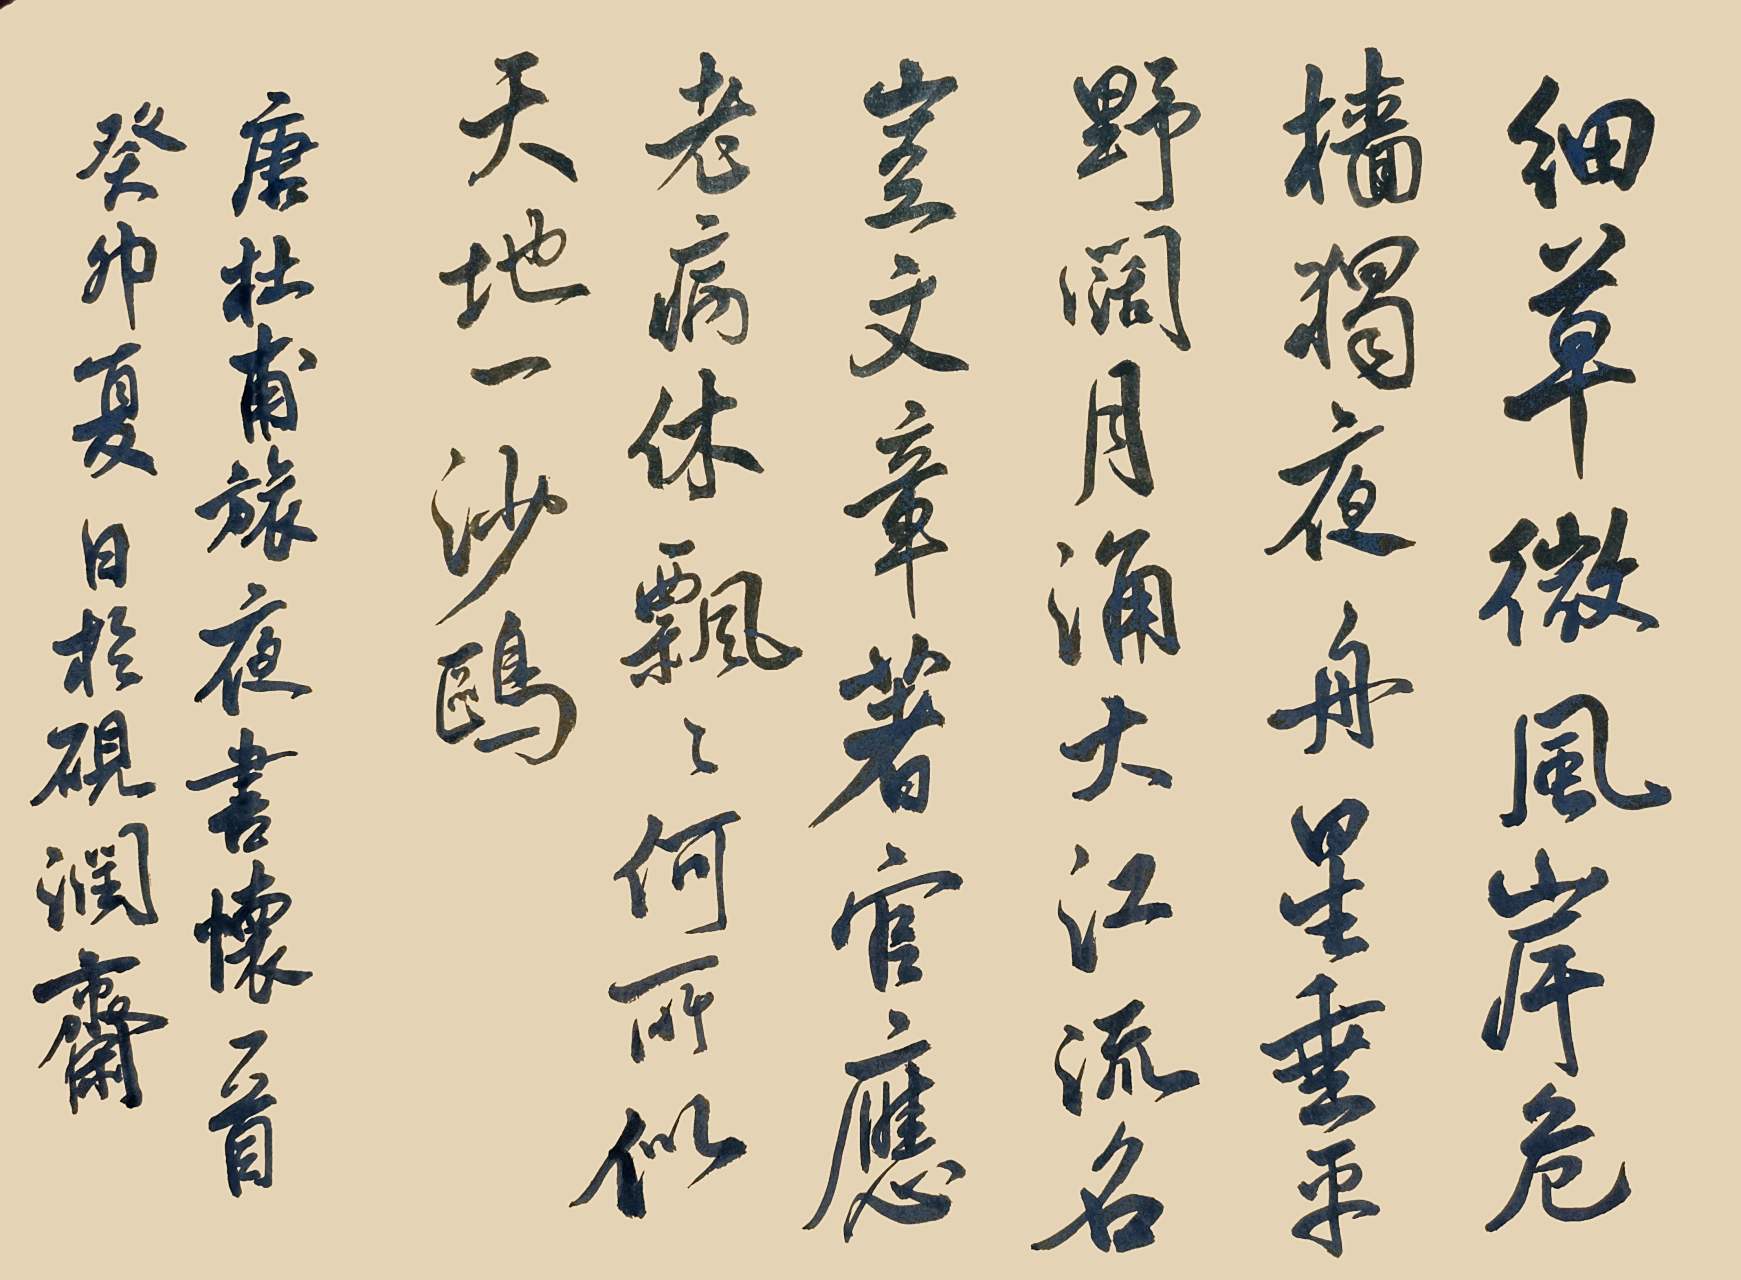 細草微風岸危
檣獨夜舟星垂平
野闊月涌大江流名
豈文章著官應
老病休飄々何所似
天地一沙鷗
唐杜甫旅夜書懷一首
癸卯夏日於硯潤齋